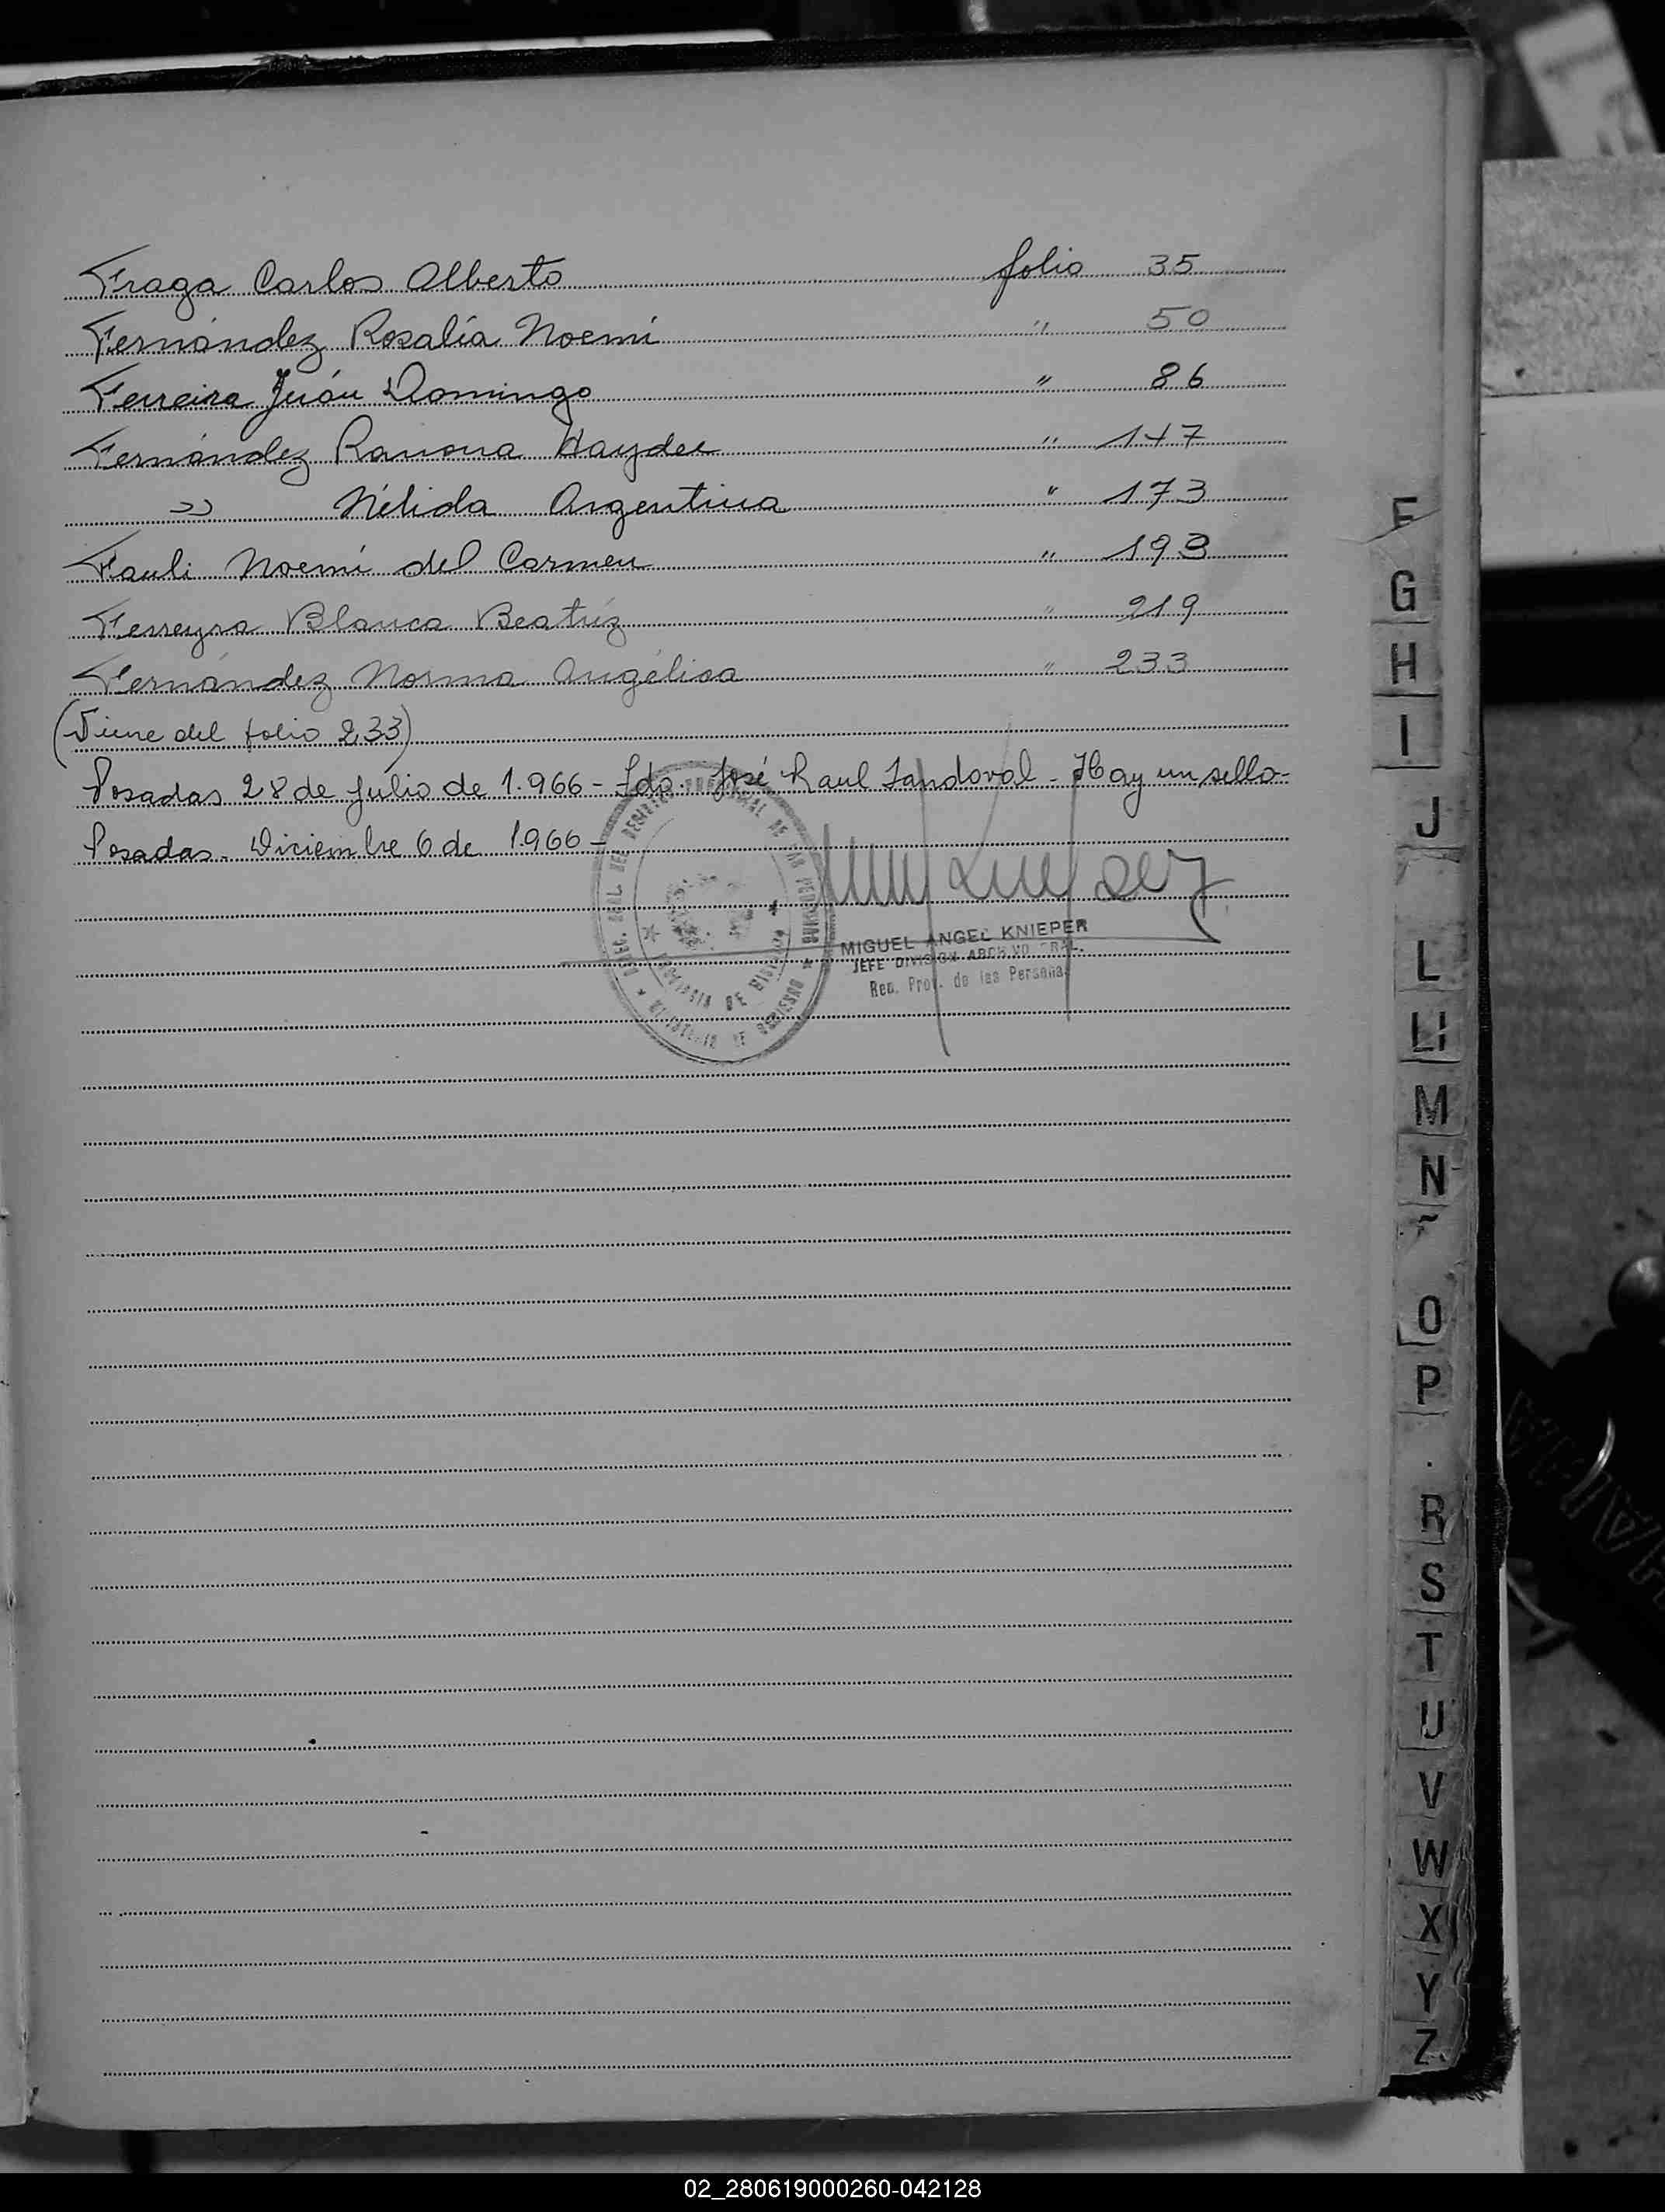 Fraga Carlos Alberto folio 35
Fernández Rosalía Noemí " 50
Ferreira Juán Domingo " 86
Fernández Ramona Haydee " 147
" Nélida Argentina " 173
Fauli Noemí del Carmen " 193
Ferreyra Blanca Beatríz " 219
Fernández Norma Angélica " 233
(Viene del folio 233)
Posadas 28 de Julio de 1.966 - Fdo. José Raul Sandoval - Hay un sello -
Posadas. Diciembre 6 de 1966 -
MIGUEL ANGEL KNIEPER
JEFE DIVISION ARCHIVO GRAL.
Reg. Prov. de las Personas
F
G
H
I
J
L
Ll
M
N
Ñ
O
P
R
S
T
U
V
W
X
Y
Z
02_280619000260-042128